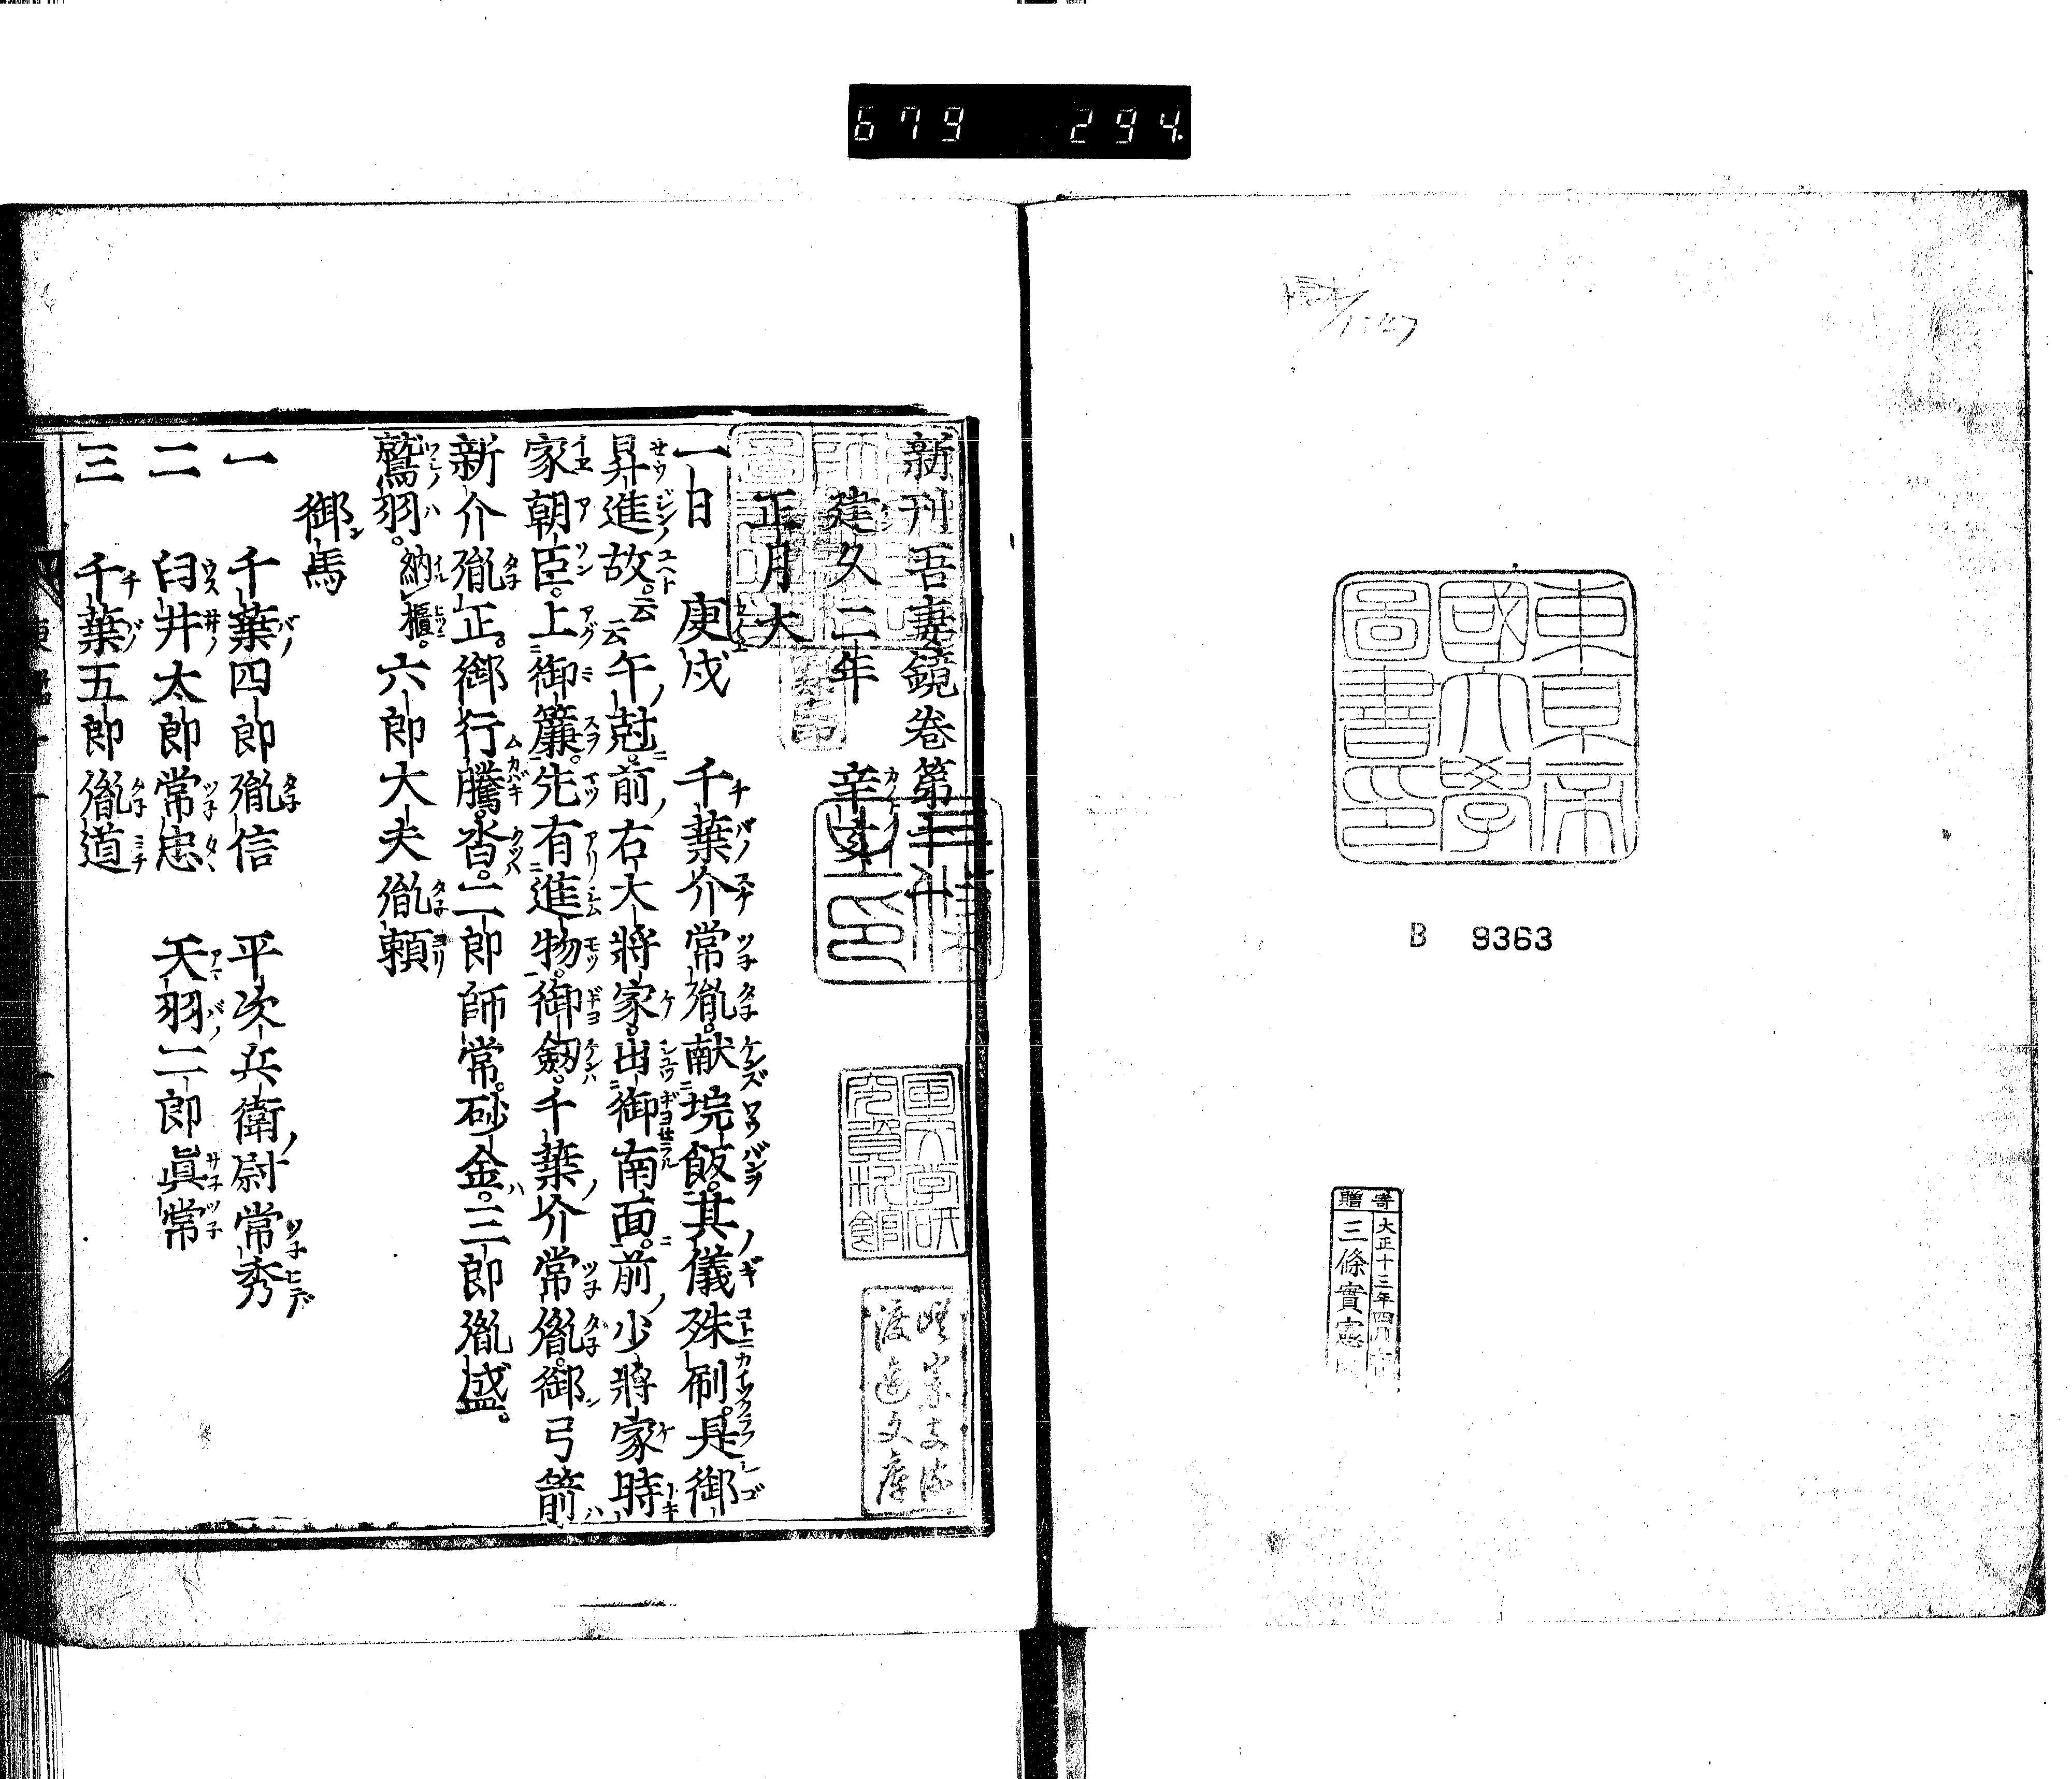 679 294
東京帝
國大學
圖書印
B 9363
寄贈
大正十三年四月
三條實憲
新刊吾妻鏡卷第十一
建久二年 辛亥
正月大
一日 庚戌 千葉介常胤献垸飯其儀殊刷是御
昇進故云云午尅前右大將家出御南面前少將家時
家朝臣上御簾先有進物御劔千葉介常胤御弓箭
新介胤正御行騰沓二郎師常砂金三郎胤盛
鷲羽納櫃六郎大夫胤頼
御馬
一 千葉四郎胤信 平次兵衛尉常秀
二 臼井太郎常忠 天羽二郎眞常
三 千葉五郎胤道